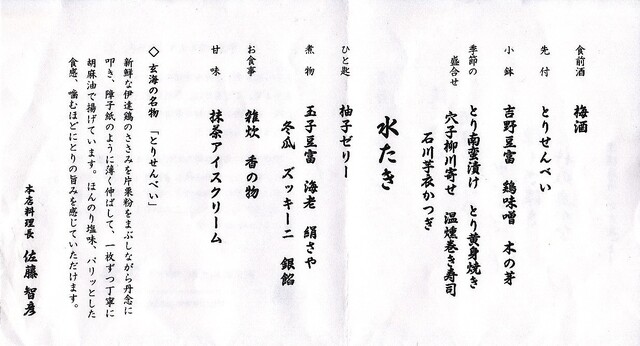 食前酒
梅酒
先付
とりせんべい
小鉢
吉野豆富 鶏味噌 木の芽
季節の
盛合せ
とり南蛮漬け とり黄身焼き
穴子柳川寄せ 温燻巻き寿司
石川芋衣かつぎ
水たき
ひと匙
柚子ゼリー
煮物
玉子豆富 海老 絹さや
冬瓜 ズッキーニ 銀餡
お食事
雑炊 香の物
甘味
抹茶アイスクリーム
◇ 玄海の名物 「とりせんべい」
新鮮な伊達鶏のささみを片栗粉をまぶしながら丹念に
叩き、障子紙のように薄く伸ばして、一枚ずつ丁寧に
胡麻油で揚げています。ほんのり塩味、パリッとした
食感、噛むほどにとりの旨みを感じていただけます。
本店料理長 佐藤 智彦